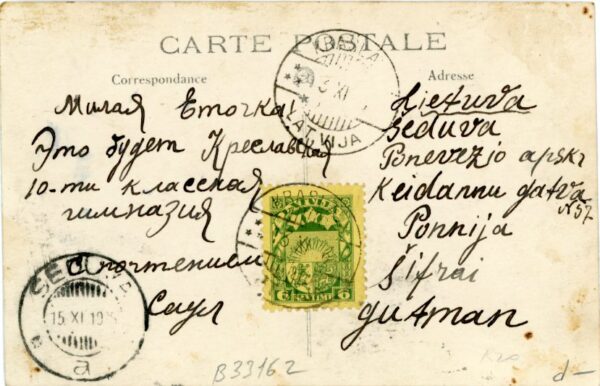 CARTE POSTALE
Correspondance
Милая Еточка!
Это будет Креславская
10-ти классная
гимназия
С почтением
Саул
Adresse
Lietuva
Šeduva
Ponevežio apskr
Keidannu gatva
№57
Ponnija
Šifrai
gutman
KRASLAVA
3 XI
LATVIJA
LATVIJA
6 SANTIMI 6
SEDUVA
15 XI 19
a
B33162
d-